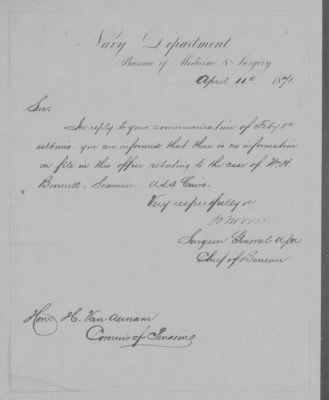 Navy Department
Bureau of Medicine & Surgery
April 11th 1871
Sir:
In reply to your communication of Feby
ultimo you are informed that there is no information
on file in this office relating to the case of Wm H.
Bennett, Seaman, U.S.S. Cairo.
Very respectfully
Surgeon General U.S.N.
Chief of Bureau
Hon: H. Van Aernam
Commr of Pensions